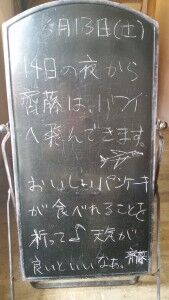 月13日(土)
14日の夜から
齊藤は、ハワイ
へ飛んできます。
おいしいパンケーキ
が食べれることを
祈って♪ 天気が
良いといいなぁ。齊藤